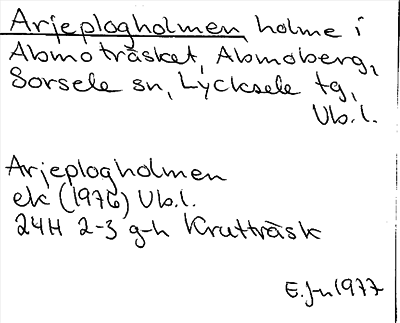 Arjeplogholmen holme i
Abmoträsket, Abmoberg,
Sorsele sn, Lycksele tg,
Vb.l.
Arjeplogholmen
ek (1976) Vb.l.
24H 2-3 g-h Krutträsk
E.J-n 1977